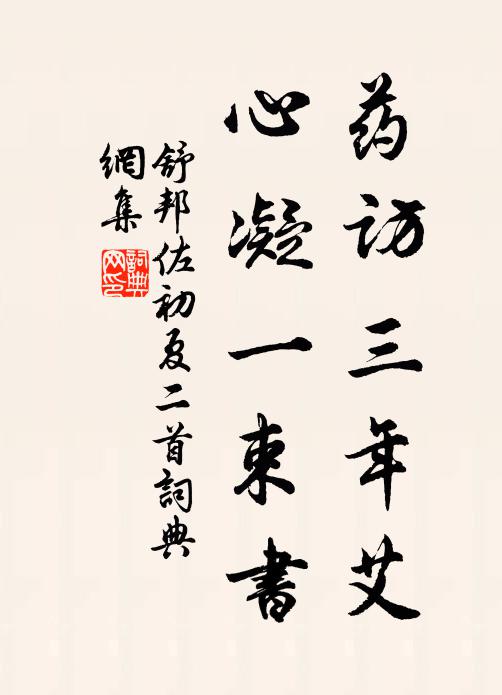 药访三年艾
心凝一束書
舒邦佐初夏二首詞典
網集
詞典
网印